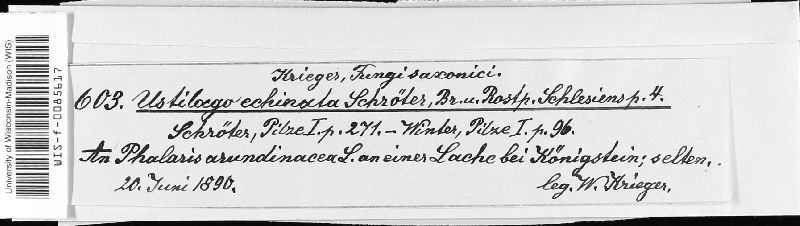 University of Wisconsin-Madison (WIS)
WIS-f-0085617
Krieger, Fungi saxonici.
603. Ustilago echinata Schröter, Br. u. Rostp. Schlesiens p. 4.
Schröter, Pilze I. p. 271. – Winter, Pilze I. p. 96.
An Phalaris arundinacea L. an einer Lache bei Königstein; selten.
20. Juni 1890.
leg. W. Krieger.